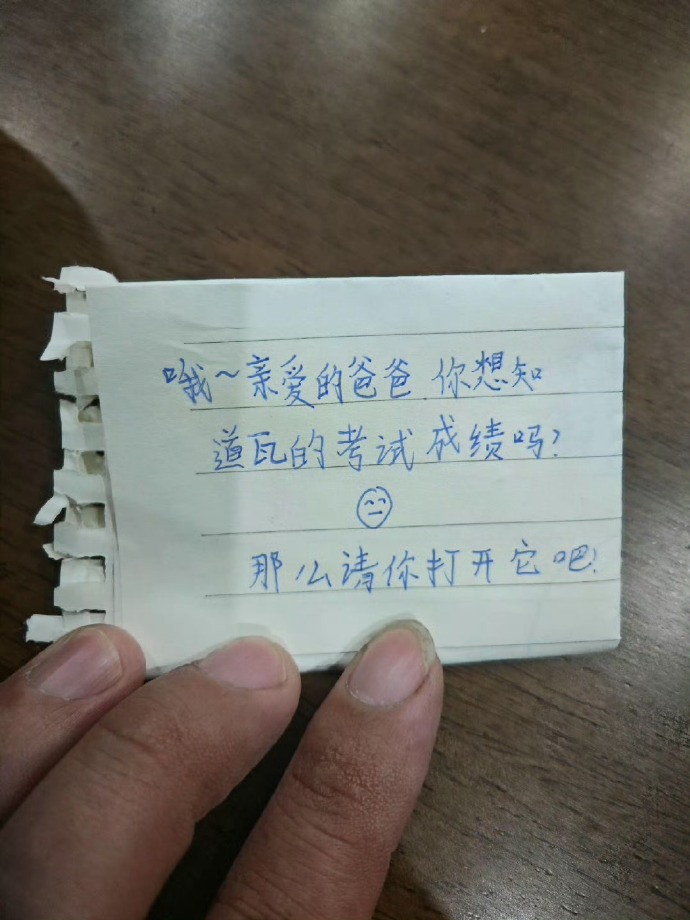 哦~亲爱的爸爸 你想知
道瓦的考试成绩吗?
那么请你打开它吧!